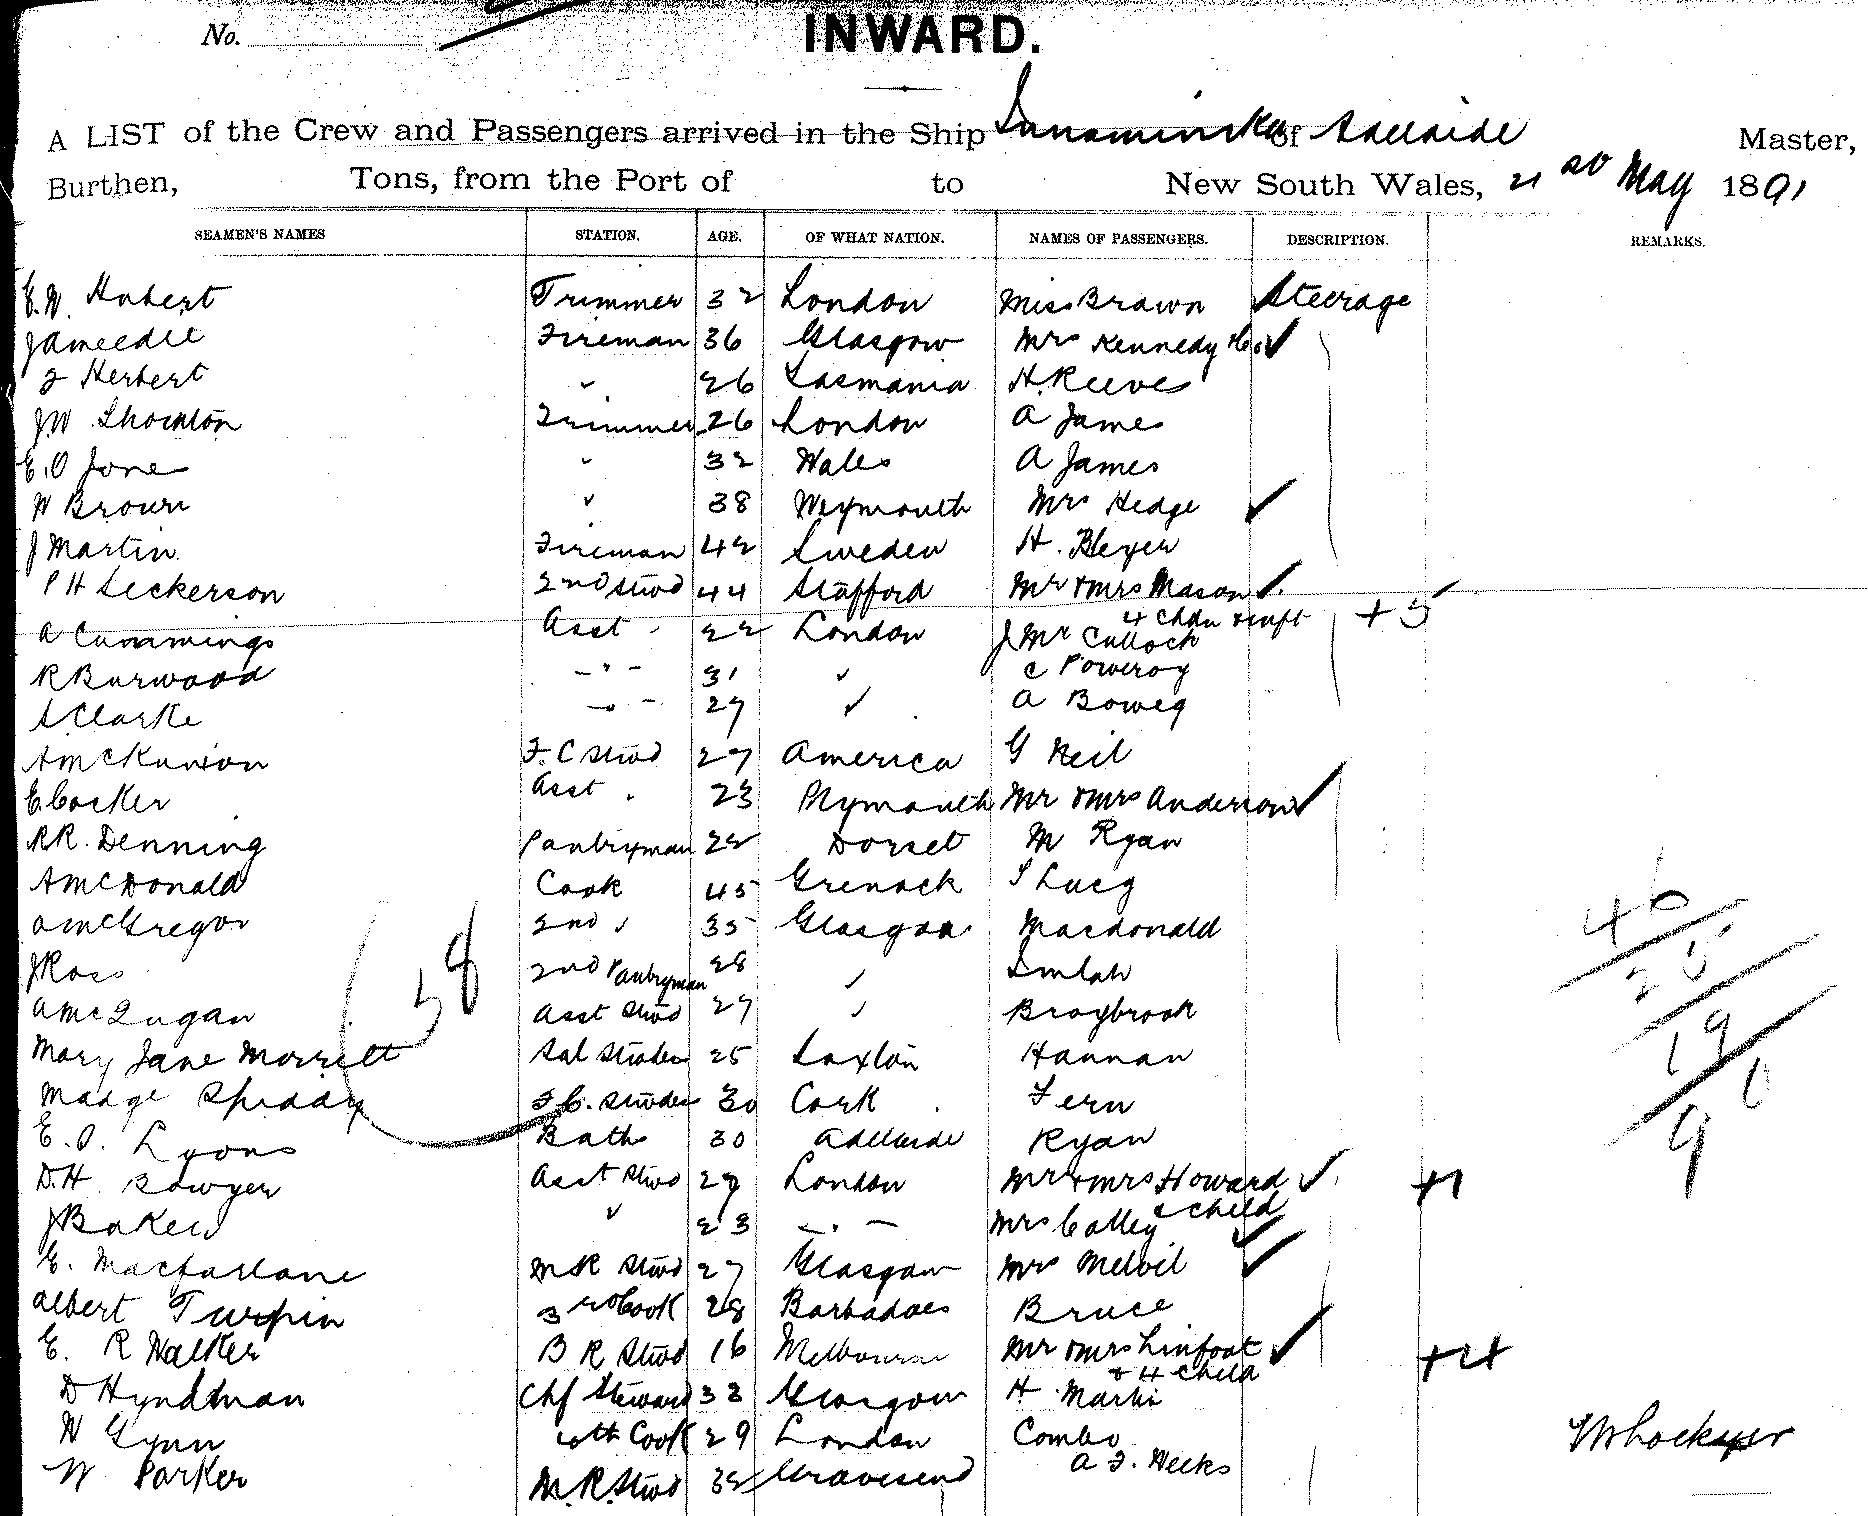 No.
INWARD.
A LIST of the Crew and Passengers arrived in the Ship Innamincka of Adelaide Master,
Burthen, Tons, from the Port of to New South Wales, 21 May 1891
SEAMEN'S NAMES STATION. AGE. OF WHAT NATION. NAMES OF PASSENGERS. DESCRIPTION. REMARKS.
E.W. Hubert Trimmer 32 London Miss Brown Steerage
J Ameedee Fireman 36 Glasgow Mrs Kennedy
F Herbert " 26 Tasmania H. Reeve
J W Thornton Trimmer 26 London A James
E. O Jone " 32 Wales A James
W Brown " 38 Weymouth Mrs Hedge
J Martin Fireman 42 Sweden H. Beyer
P H Seckerson 2nd Stwd 44 Stafford Mr & Mrs Mason
4 Chdn & inft + 5
A Cummings Asst " 22 London J McCullock
R Burwood - " - 31 " C Poweroy
S Clarke - " - 27 " A Boweg
A McKinnon F. C Stwd 27 America G Neil
E Cocker Asst " 23 Plymouth Mr & Mrs Anderson
R R. Denning Pantryman 22 Dorset M Ryan
A McDonald Cook 45 Grenock S Lucy
A McGregor 2nd " 35 Glasgow Macdonald
J Ross 2nd Pantryman 28 " Imlah
A McGugan Asst Stwd 27 " Braybrook
Mary Jane Morritt Sal Stwdess 25 Loxton Hannan
Madge Spiddy F. C. Stwdess 30 Cork Fern
E. O. Lyons Baths 30 Adelaide Ryan
D. H. Sawyer Asst Stwd 27 London Mr & Mrs Howard +1
& Child
J Baker " 23 - " - Mrs Colley
E. Macfarlane M R Stwd 27 Glasgow Mrs Melvil
Albert Turpin 3rd Cook 28 Barbadoes Bruce
E. R Walker B R Stwd 16 Melbourne Mr & Mrs Linfoot +4
& 4 Child
D Hyndman Chf Steward 33 Glasgow H Martin
W Gynn 4th Cook 29 London Combo
W Parker M. R. Stwd 32 Gravesend A F. Weeks
58
46
25
19
9